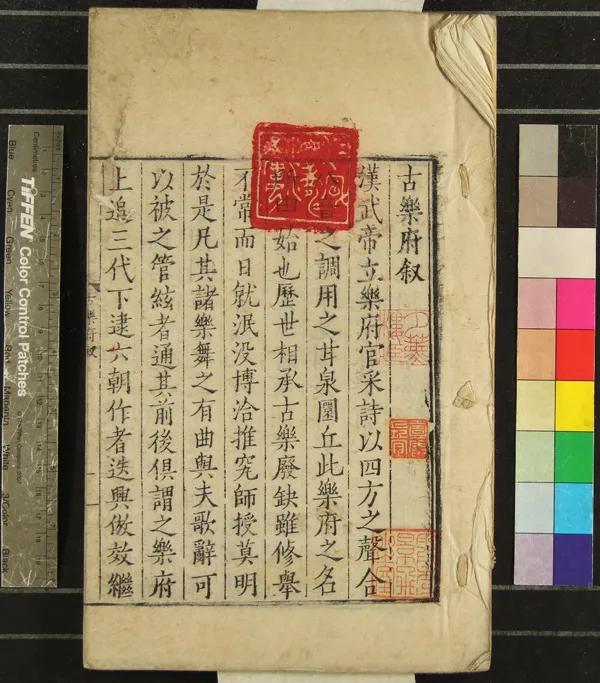 古樂府叙
漢武帝立樂府官采詩以四方之聲合
音之調用之甘泉圜丘此樂府之名
由始也歷世相承古樂廢缺雖修舉
不常而日就泯没博洽推究師授莫明
於是凡其諸樂舞之有曲與夫歌辭可
以被之管絃者通其前後俱謂之樂府
上追三代下逮六朝作者迭興倣效繼
古樂府叙
一
TIFFEN Color Control Patches
Centimetres
Blue
Cyan
Green
Yellow
Red
Magenta
White
3/Color
Black